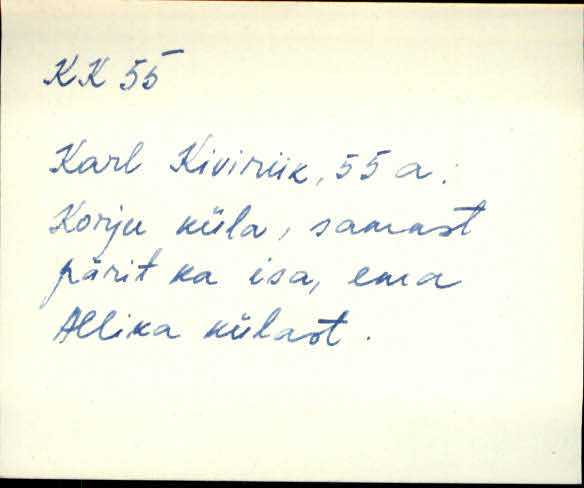 KK 55
Karl Kiviriik, 55 a.
Korju küla, samast
pärit ka isa, ema
Allika külast.